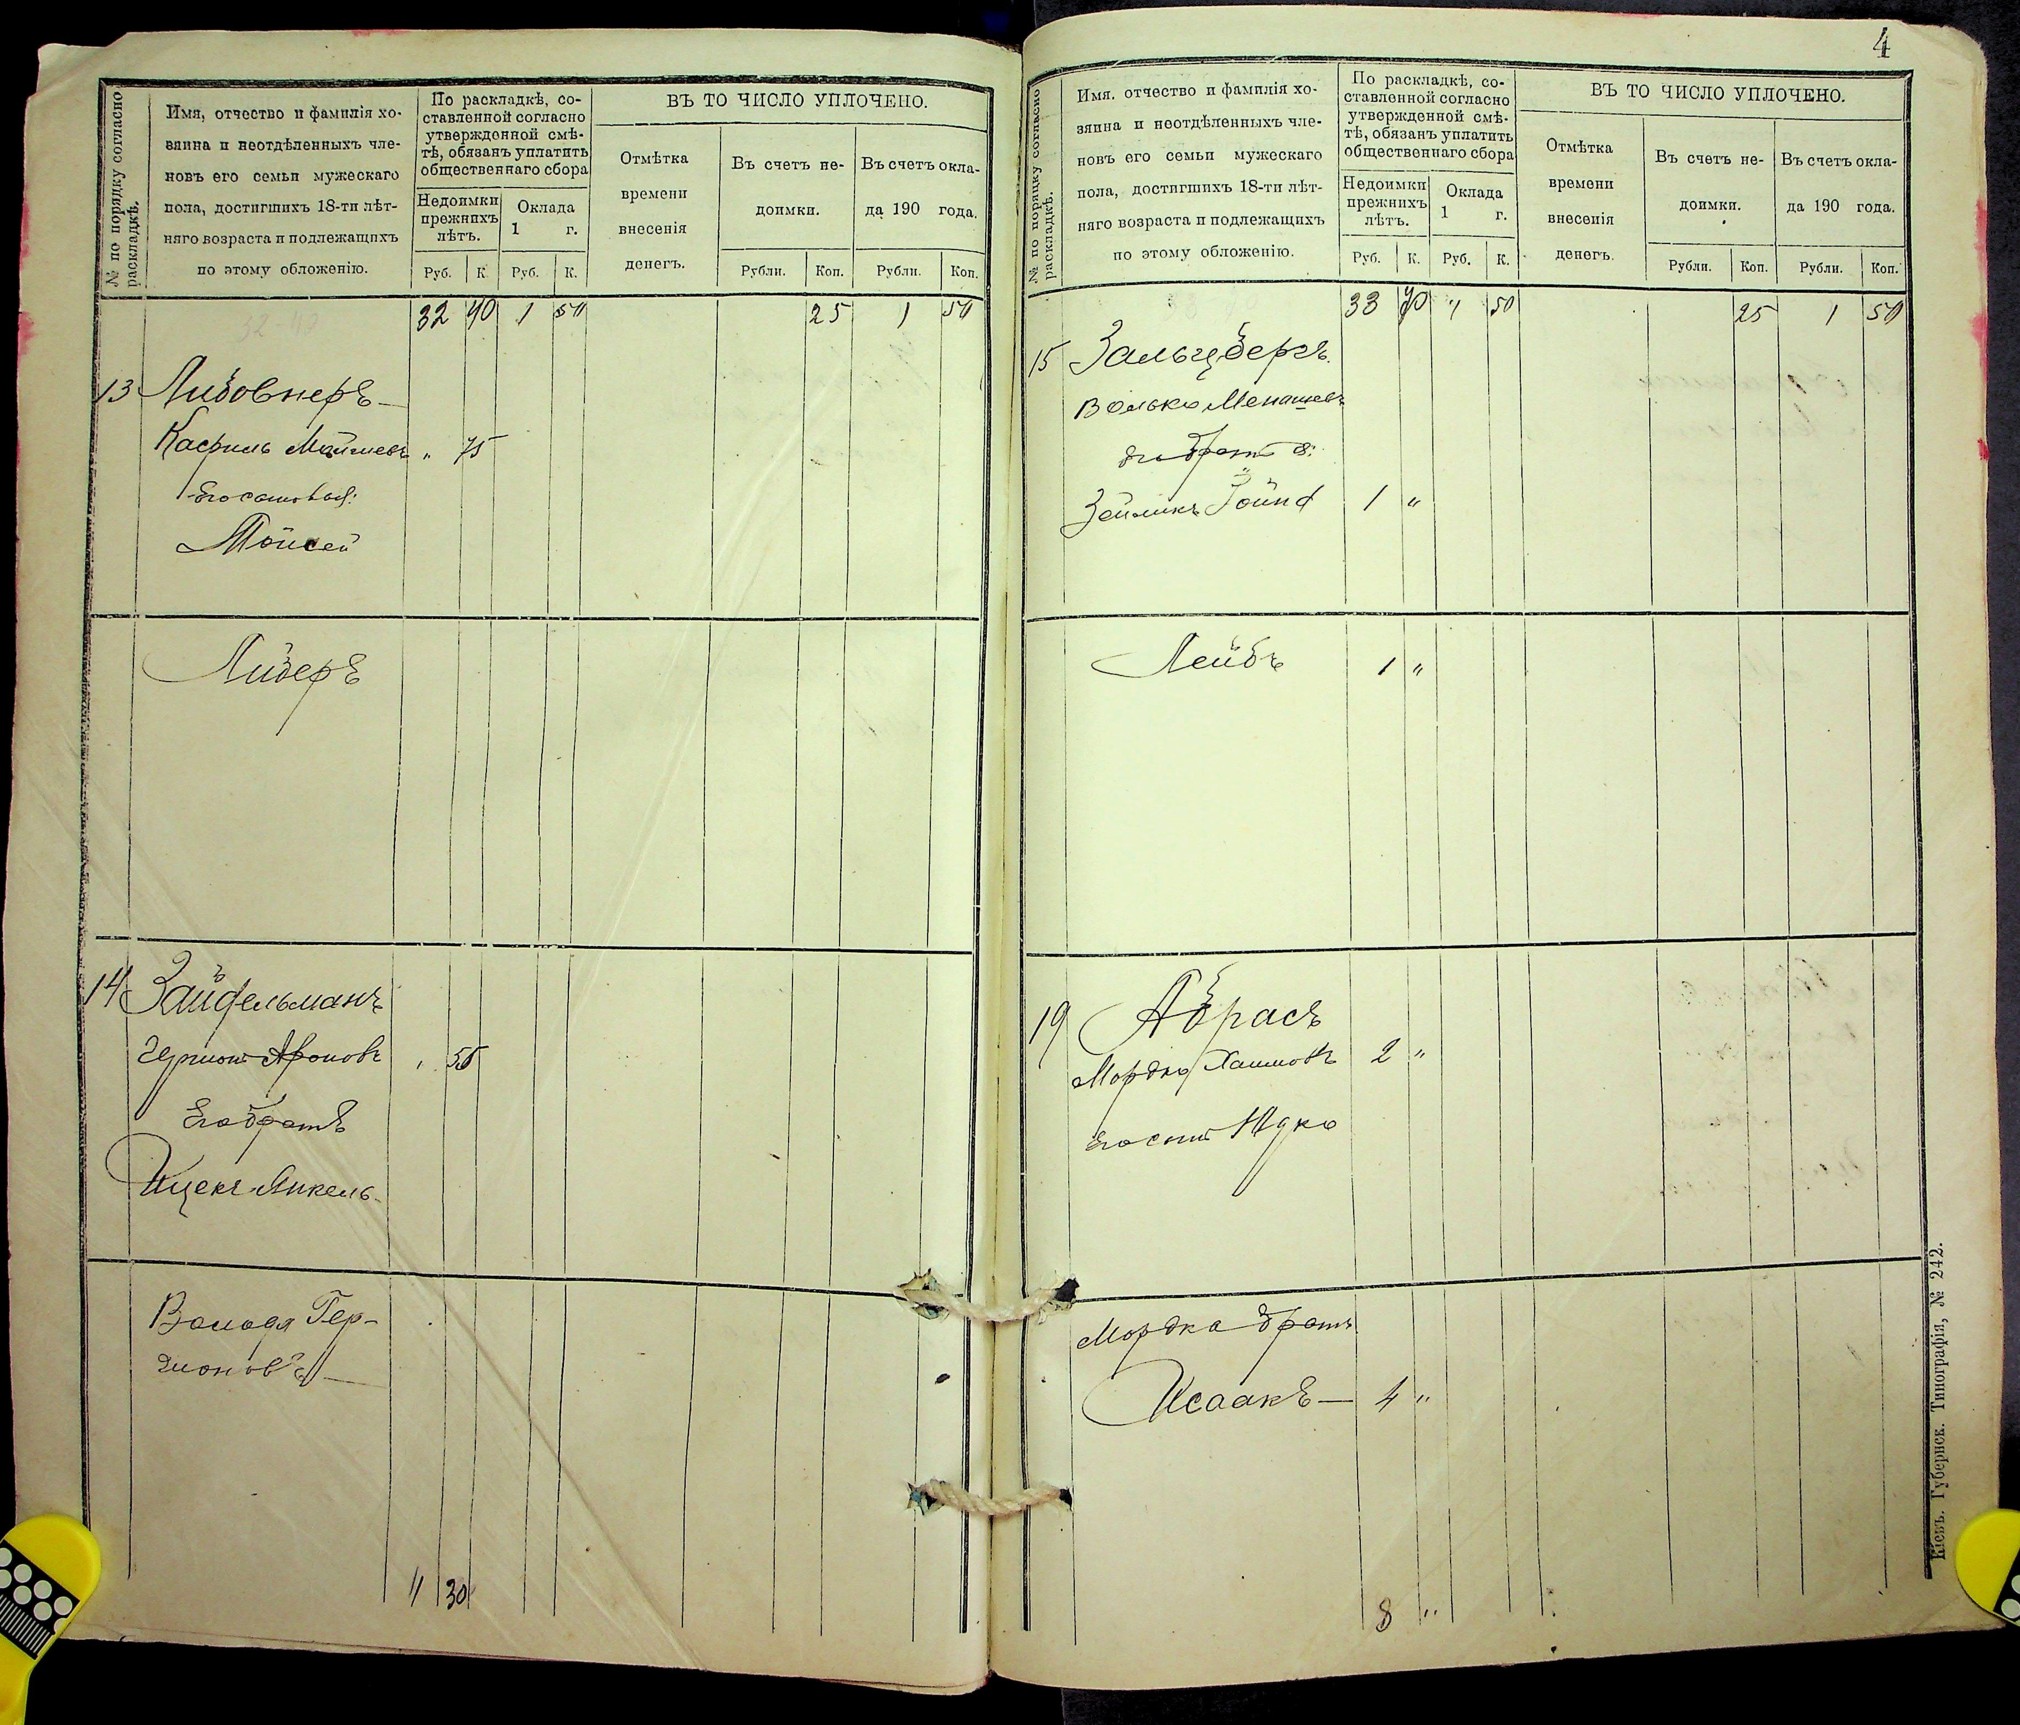 № по порядку согласно раскладкѣ.
Имя, отчество и фамилія хо-
зяина и неотдѣленныхъ чле-
новъ его семьи мужескаго
пола, достигшихъ 18-ти лѣт-
няго возраста и подлежащихъ
по этому обложенію.
По раскладкѣ, со-
ставленной согласно
утвержденной смѣ-
тѣ, обязанъ уплатить
общественнаго сбора
Недоимки прежнихъ лѣтъ.
Оклада 1 г.
Руб. К. Руб. К.
ВЪ ТО ЧИСЛО УПЛОЧЕНО.
Отмѣтка
времени
внесенія
денегъ.
Въ счетъ не-
доимки.
Въ счетъ окла-
да 190 года.
Рубли. Коп. Рубли. Коп.
32 90 1 50 25 1 50
13 Либовнеръ
Касриль Мошевъ " 75
Мойсей
Либеръ
14 Зайдельманъ
Гершонъ Ароновъ " 55
Его братъ
Ицекъ-Янкель
Володя Гер-
шоновъ
" 30
4
№ по порядку согласно раскладкѣ.
Имя, отчество и фамилія хо-
зяина и неотдѣленныхъ чле-
новъ его семьи мужескаго
пола, достигшихъ 18-ти лѣт-
няго возраста и подлежащихъ
по этому обложенію.
По раскладкѣ, со-
ставленной согласно
утвержденной смѣ-
тѣ, обязанъ уплатить
общественнаго сбора
Недоимки прежнихъ лѣтъ.
Оклада 1 г.
Руб. К. Руб. К.
ВЪ ТО ЧИСЛО УПЛОЧЕНО.
Отмѣтка
времени
внесенія
денегъ.
Въ счетъ не-
доимки.
Въ счетъ окла-
да 190 года.
Рубли. Коп. Рубли. Коп.
33 70 1 50 25 1 50
15 Зальцбергъ
Волько Менашевъ
его братъ
Зейликъ 1 "
Лейбъ 1 "
19 Абрасъ
Мордко Хаимовъ 2 "
Его сынъ Юдко
Мордка братъ
Исаакъ — 4 "
8 "
Кіевъ. Губернск. Типографія, № 242.